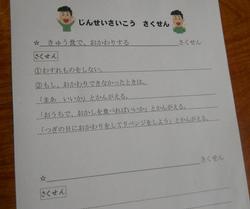 じんせいさいこう さくせん
☆ きゅう食で、おかわりする さくせん
さくせん
①わすれものをしない。
②もし、おかわりできなかったときは、
「まあ、いいか」とかんがえる。
「おうちで、おかしを食べればいいか」とかんがえる。
「つぎの日におかわりをしてリベンジをしよう」とかんがえる。
☆ さくせん
さくせん